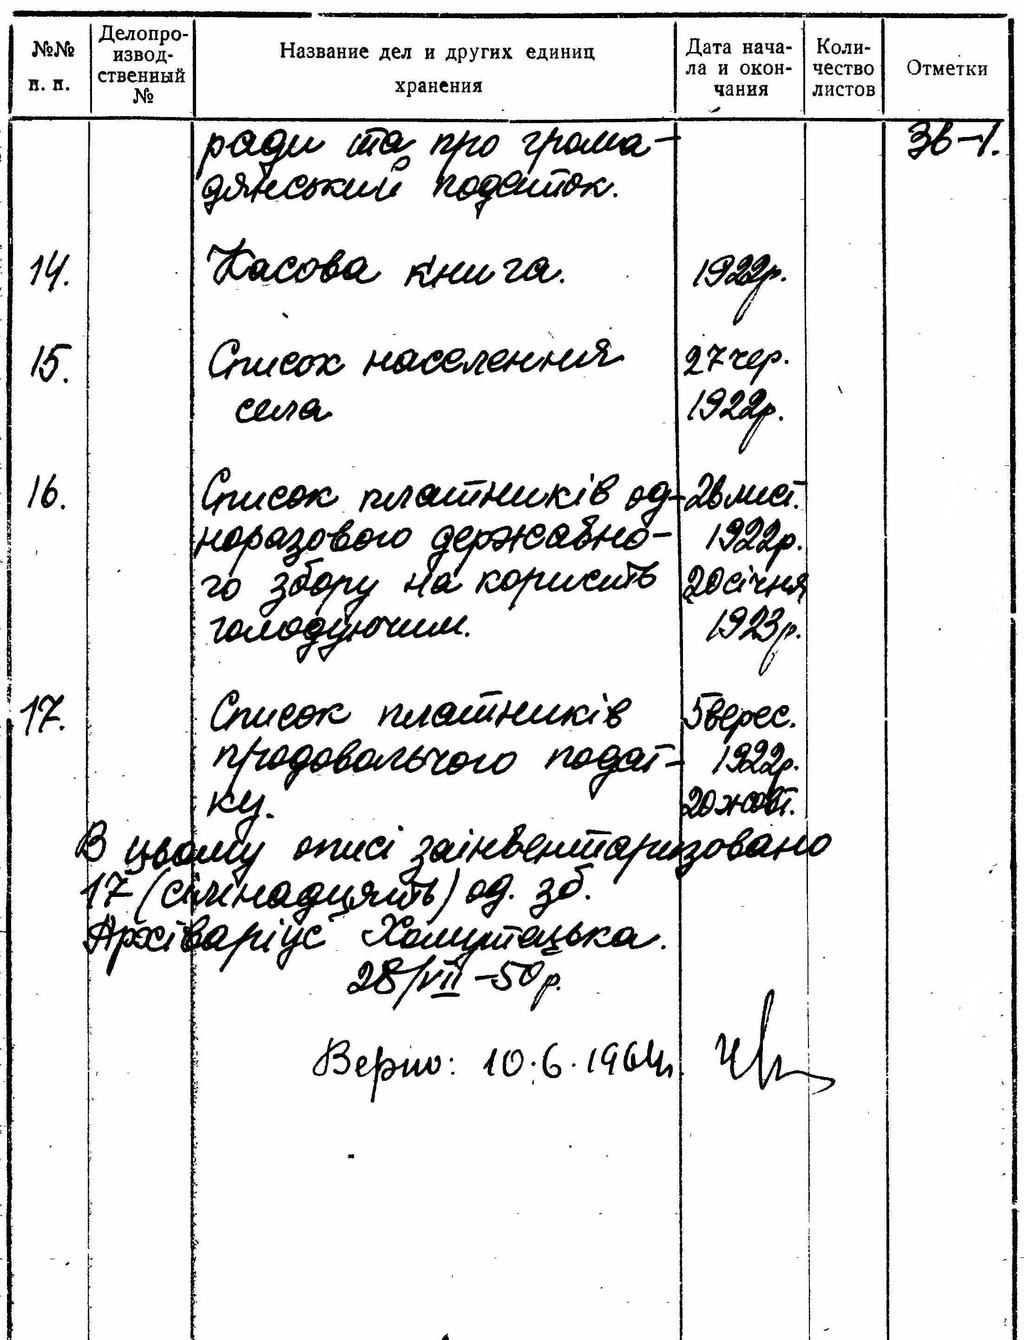 №№ п. п. | Делопро-извод-ственный № | Название дел и других единиц хранения | Дата нача-ла и окон-чания | Коли-чество листов | Отметки
ради та про грома- | Зв-1.
дянський податок.
14. Касова книга. 1922р.
15. Список населення 27 чер.
села 1922р.
16. Список платників од- 26 лист.
норазового державно- 1922р.
го збору на користь 20 січня
голодуючим. 1923р.
17. Список платників 5 верес.
продовольчого подат- 1922р.
ку. 20 жовт.
В цьому описі заінвентаризовано
17 (сімнадцять) од. зб.
Архіваріус Хомутецька.
28/VII-50р.
Верно: 10.6.1964г.